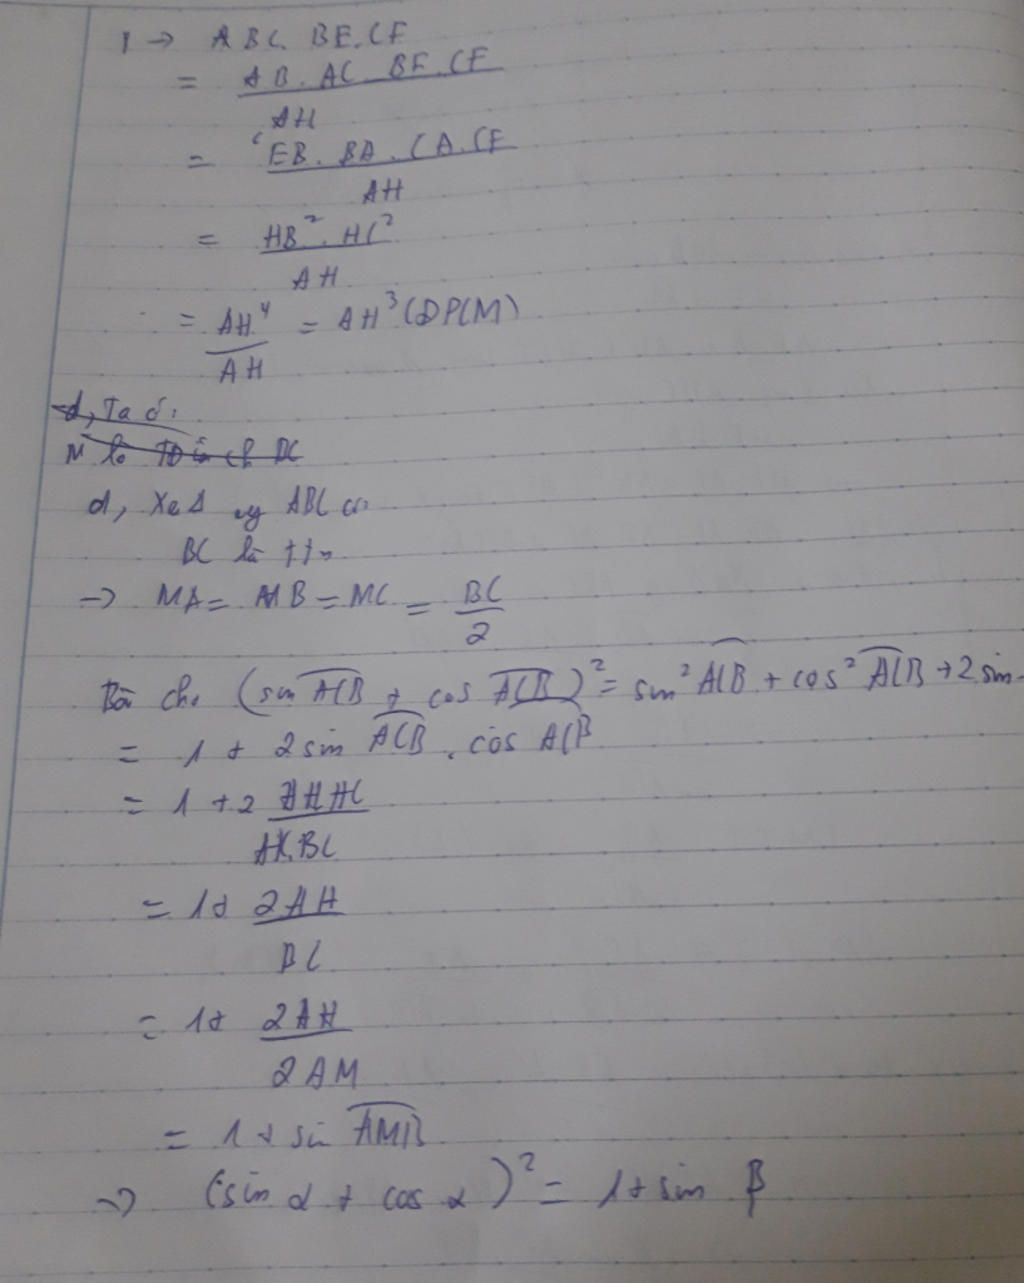 → ABC. BE.CF
= AB. AC. BE.CF
AH
= EB. BA. CA.CF
AH
= HB². HC²
AH
= AH⁴ = AH³ (ĐPCM)
AH
d, Ta có:
M là TĐ BC
d, Xe Δ ABC có
BC là
→ MA = MB = MC = BC
2
(sin ACB + cos ACB)² = sin² ACB + cos² ACB + 2 sin
= 1 + 2 sin ACB . cos ACB
= 1 + 2 AH.HC
AC.BC
= 1 + 2AH
BC
= 1 + 2AH
2AM
= 1 + sin AMB
→ (sin α + cos α)² = 1 + sin β